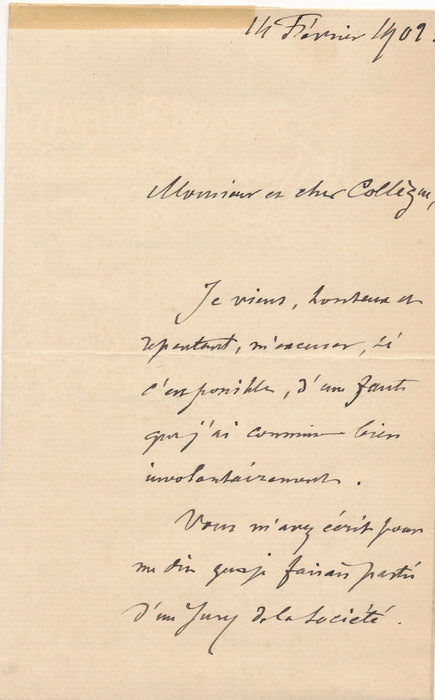 14 Février 1902.
Monsieur et cher Collègue,
Je viens, honteux et
repentant, m'excuser, si
c'est possible, d'une faute
que j'ai commise bien
involontairement.
Vous m'avez écrit pour
me dire que je faisais partie
d'un Jury de la Société.